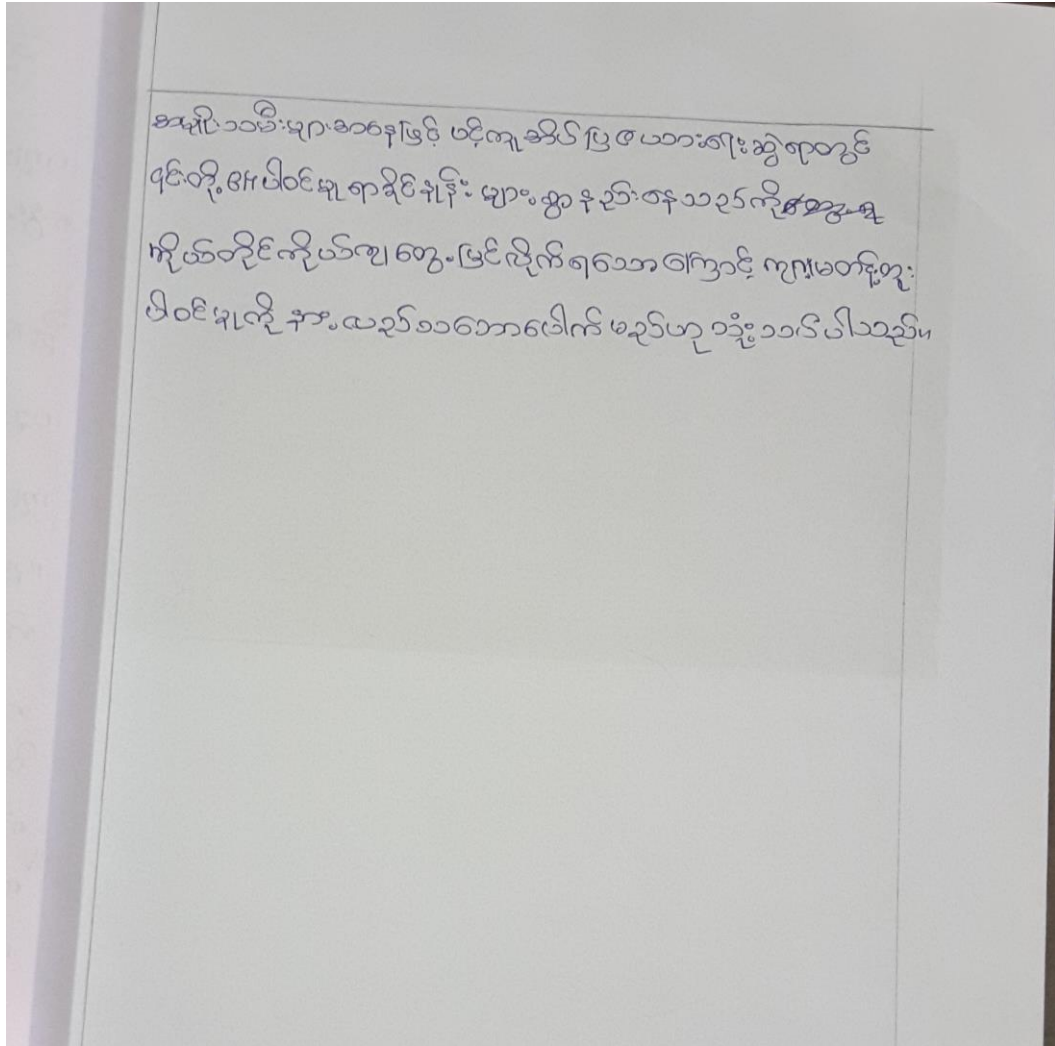 အမျိုးသမီးများအနေဖြင့် ဖင့်ကျူအိပ်ပြဇယားရေးဆွဲရာတွင်
၎င်းတို့၏ ပါဝင်မှုရာခိုင်နှုန်း များစွာ နည်းနေသည်ကို
ကိုယ်တိုင်ကိုယ်ကျ တွေ့မြင်လိုက်ရသောကြောင့် ကုလမတန်းတူး
ပါဝင်မှုကို နားလည်သဘောပေါက် မည်ဟု သုံးသပ်ပါသည်။